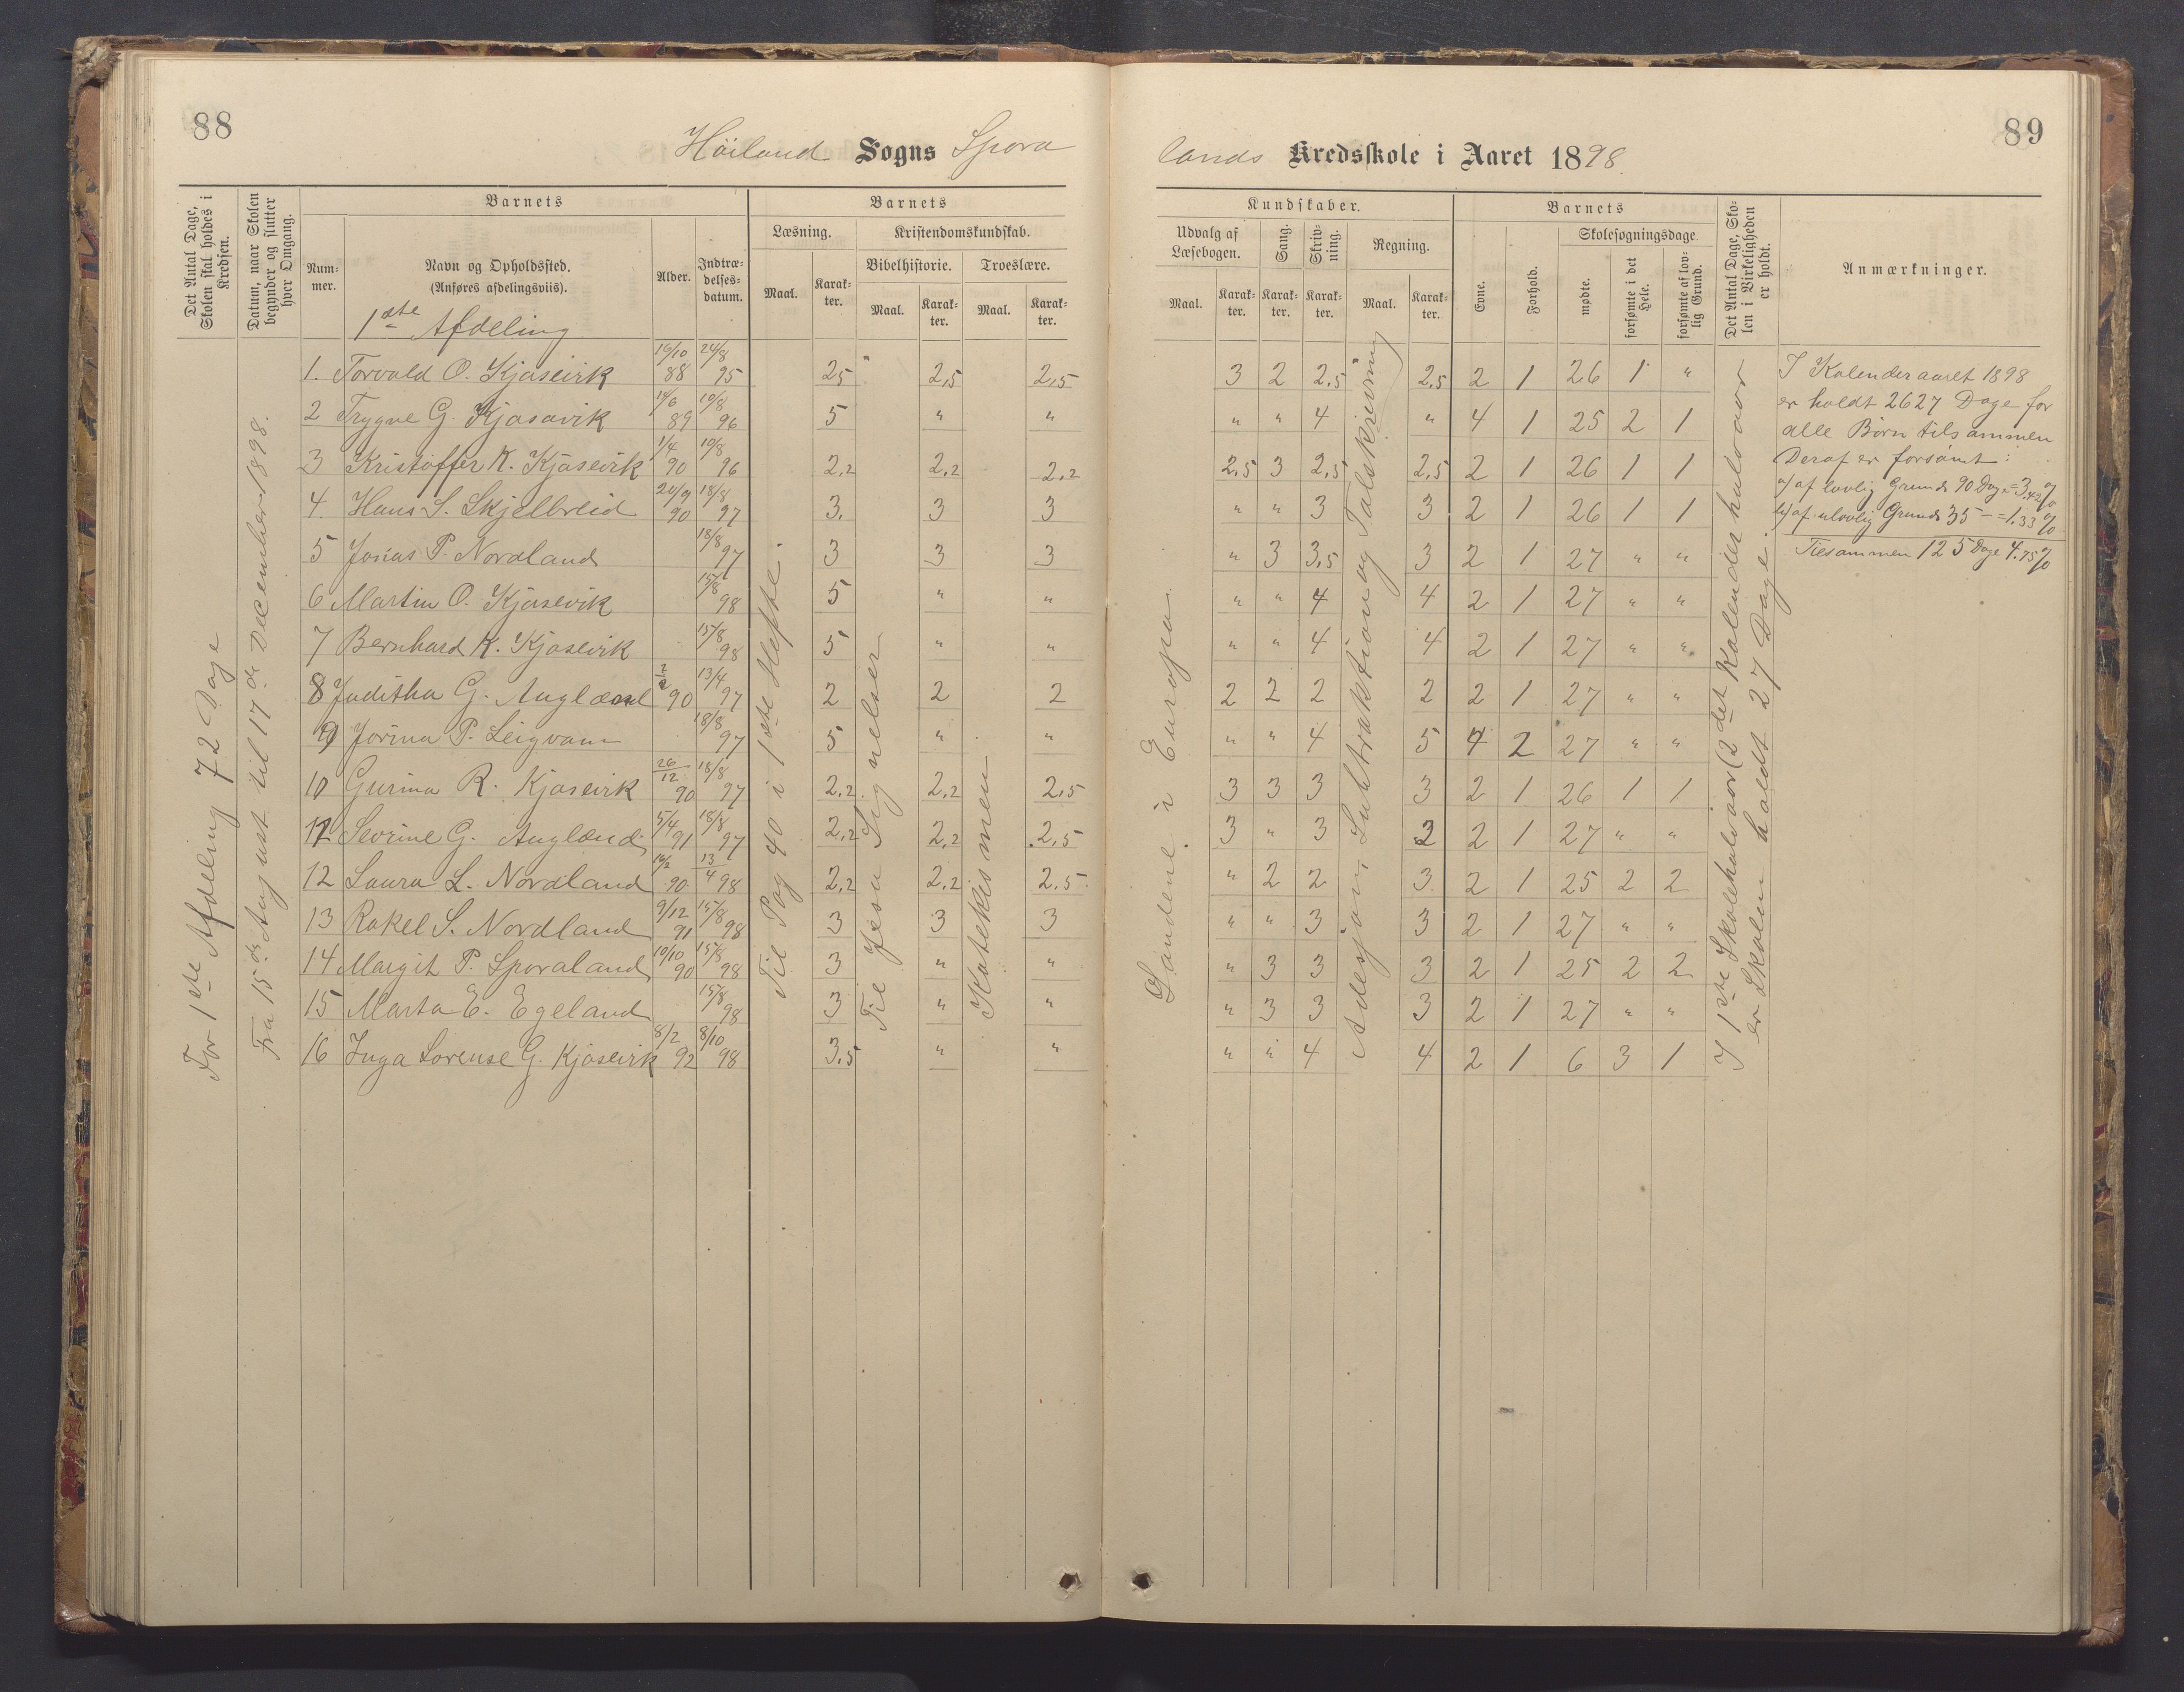 88
Höiland Sogns Spora
Det Antal Dage, Skolen skal holdes i Kredsen.
Datum, naar Skolen begynder og slutter hver Omgang.
Barnets
Num-mer.
Navn og Opholdssted.
(Anføres afdelingsviis).
Alder.
Indtræ-delses-datum.
Barnets
Læsning.
Maal.
Karak-ter.
Kristendomskundskab.
Bibelhistorie.
Maal.
Karak-ter.
Troeslære.
Maal.
Karak-ter.
For 1ste Afdeling 72 Dage
Fra 15de August til 17de December 1898.
1ste Afdeling
Til Pag 40 i 1ste Hefte.
Til Jesu Lignelser
Katekismen
1. Torvald O. Kjosevik 16/10 88 24/8 95 2,5 2,5 2,5
2 Trygve G. Kjosavik 14/6 89 10/8 96 5 " "
3 Kristoffer K. Kjosevik 1/4 90 10/8 96 2,2 2,2 2,2
4. Hans S. Skjelbreid 20/9 90 18/8 97 3. 3 3
5 Jonas P. Nordland 18/8 97 3 3 3
6 Martin O. Kjosevik 15/8 98 5 " "
7 Bernhard K. Kjosevik 15/8 98 5 " "
8 Juditha G. Auglænd 90 13/4 97 2 2 2
9 Jorina P. Leigvam 18/8 97 5 " "
10 Gurina R. Kjosevik 26/12 90 18/8 97 2,2 2,2 2,5
11 Sevrine G. Auglænd 5/4 91 18/8 97 2,2 2,2 2,5
12 Laura L. Nordland 16/2 90 13/4 98 2,2 2,2 2,5
13 Rakel S. Nordland 9/12 91 15/8 98 3 3 3
14 Margit P. Sporaland 10/10 90 15/8 98 3 " "
15 Marta E. Egeland 15/8 98 3 " "
16 Inga Lorense G. Kjosevik 8/2 92 8/10 98 3,5 " "
89
lands Kredsskole i Aaret 1898.
Kundskaber.
Udvalg af Læsebogen.
Maal.
Karak-ter.
Sang.
Karak-ter.
Skriv-ning.
Karak-ter.
Regning.
Maal.
Karak-ter.
Barnets
Evne.
Forhold.
Skolesøgningsdage.
mødte.
forsømte i det Hele.
forsømte af lov-lig Grund.
Det Antal Dage, Sko-len i Virkeligheden er holdt.
Anmærkninger.
Landene i Europa.
Adesjon, Subtraktion og Talskrivning
I 1ste Skolehalvaar (2det Kalenderhalvaar
er Skolen holdt 27 Dage.
3 2 2,5 2,5 2 1 26 1 "
" " 4 " 4 1 25 2 1
2,5 3 2,5 2,5 2 1 26 1 1
" " 3 3 2 1 26 1 1
" 3 3,5 3 2 1 27 " "
" " 4 4 2 1 27 " "
" " 4 4 2 1 27 " "
2 2 2 2 2 1 27 " "
" " 4 5 4 2 27 " "
3 3 3 3 2 1 26 1 1
3 " 3 3 2 1 27 " "
" 2 2 3 2 1 25 2 2
" " 3 3 2 1 27 " "
" 3 3 3 2 1 25 2 2
" 3 3 3 2 1 27 " "
" " 4 4 2 1 6 3 1
I Kalenderaaret 1898
er holdt 2627 Dage for
alle Børn tilsammen
Deraf er forsömt:
a) af lovlig Grund 90 Dage = 3,42 %
b) af ulovlig Grund 35 – = 1,33 %
Tilsammen 125 Dage 4.75 %